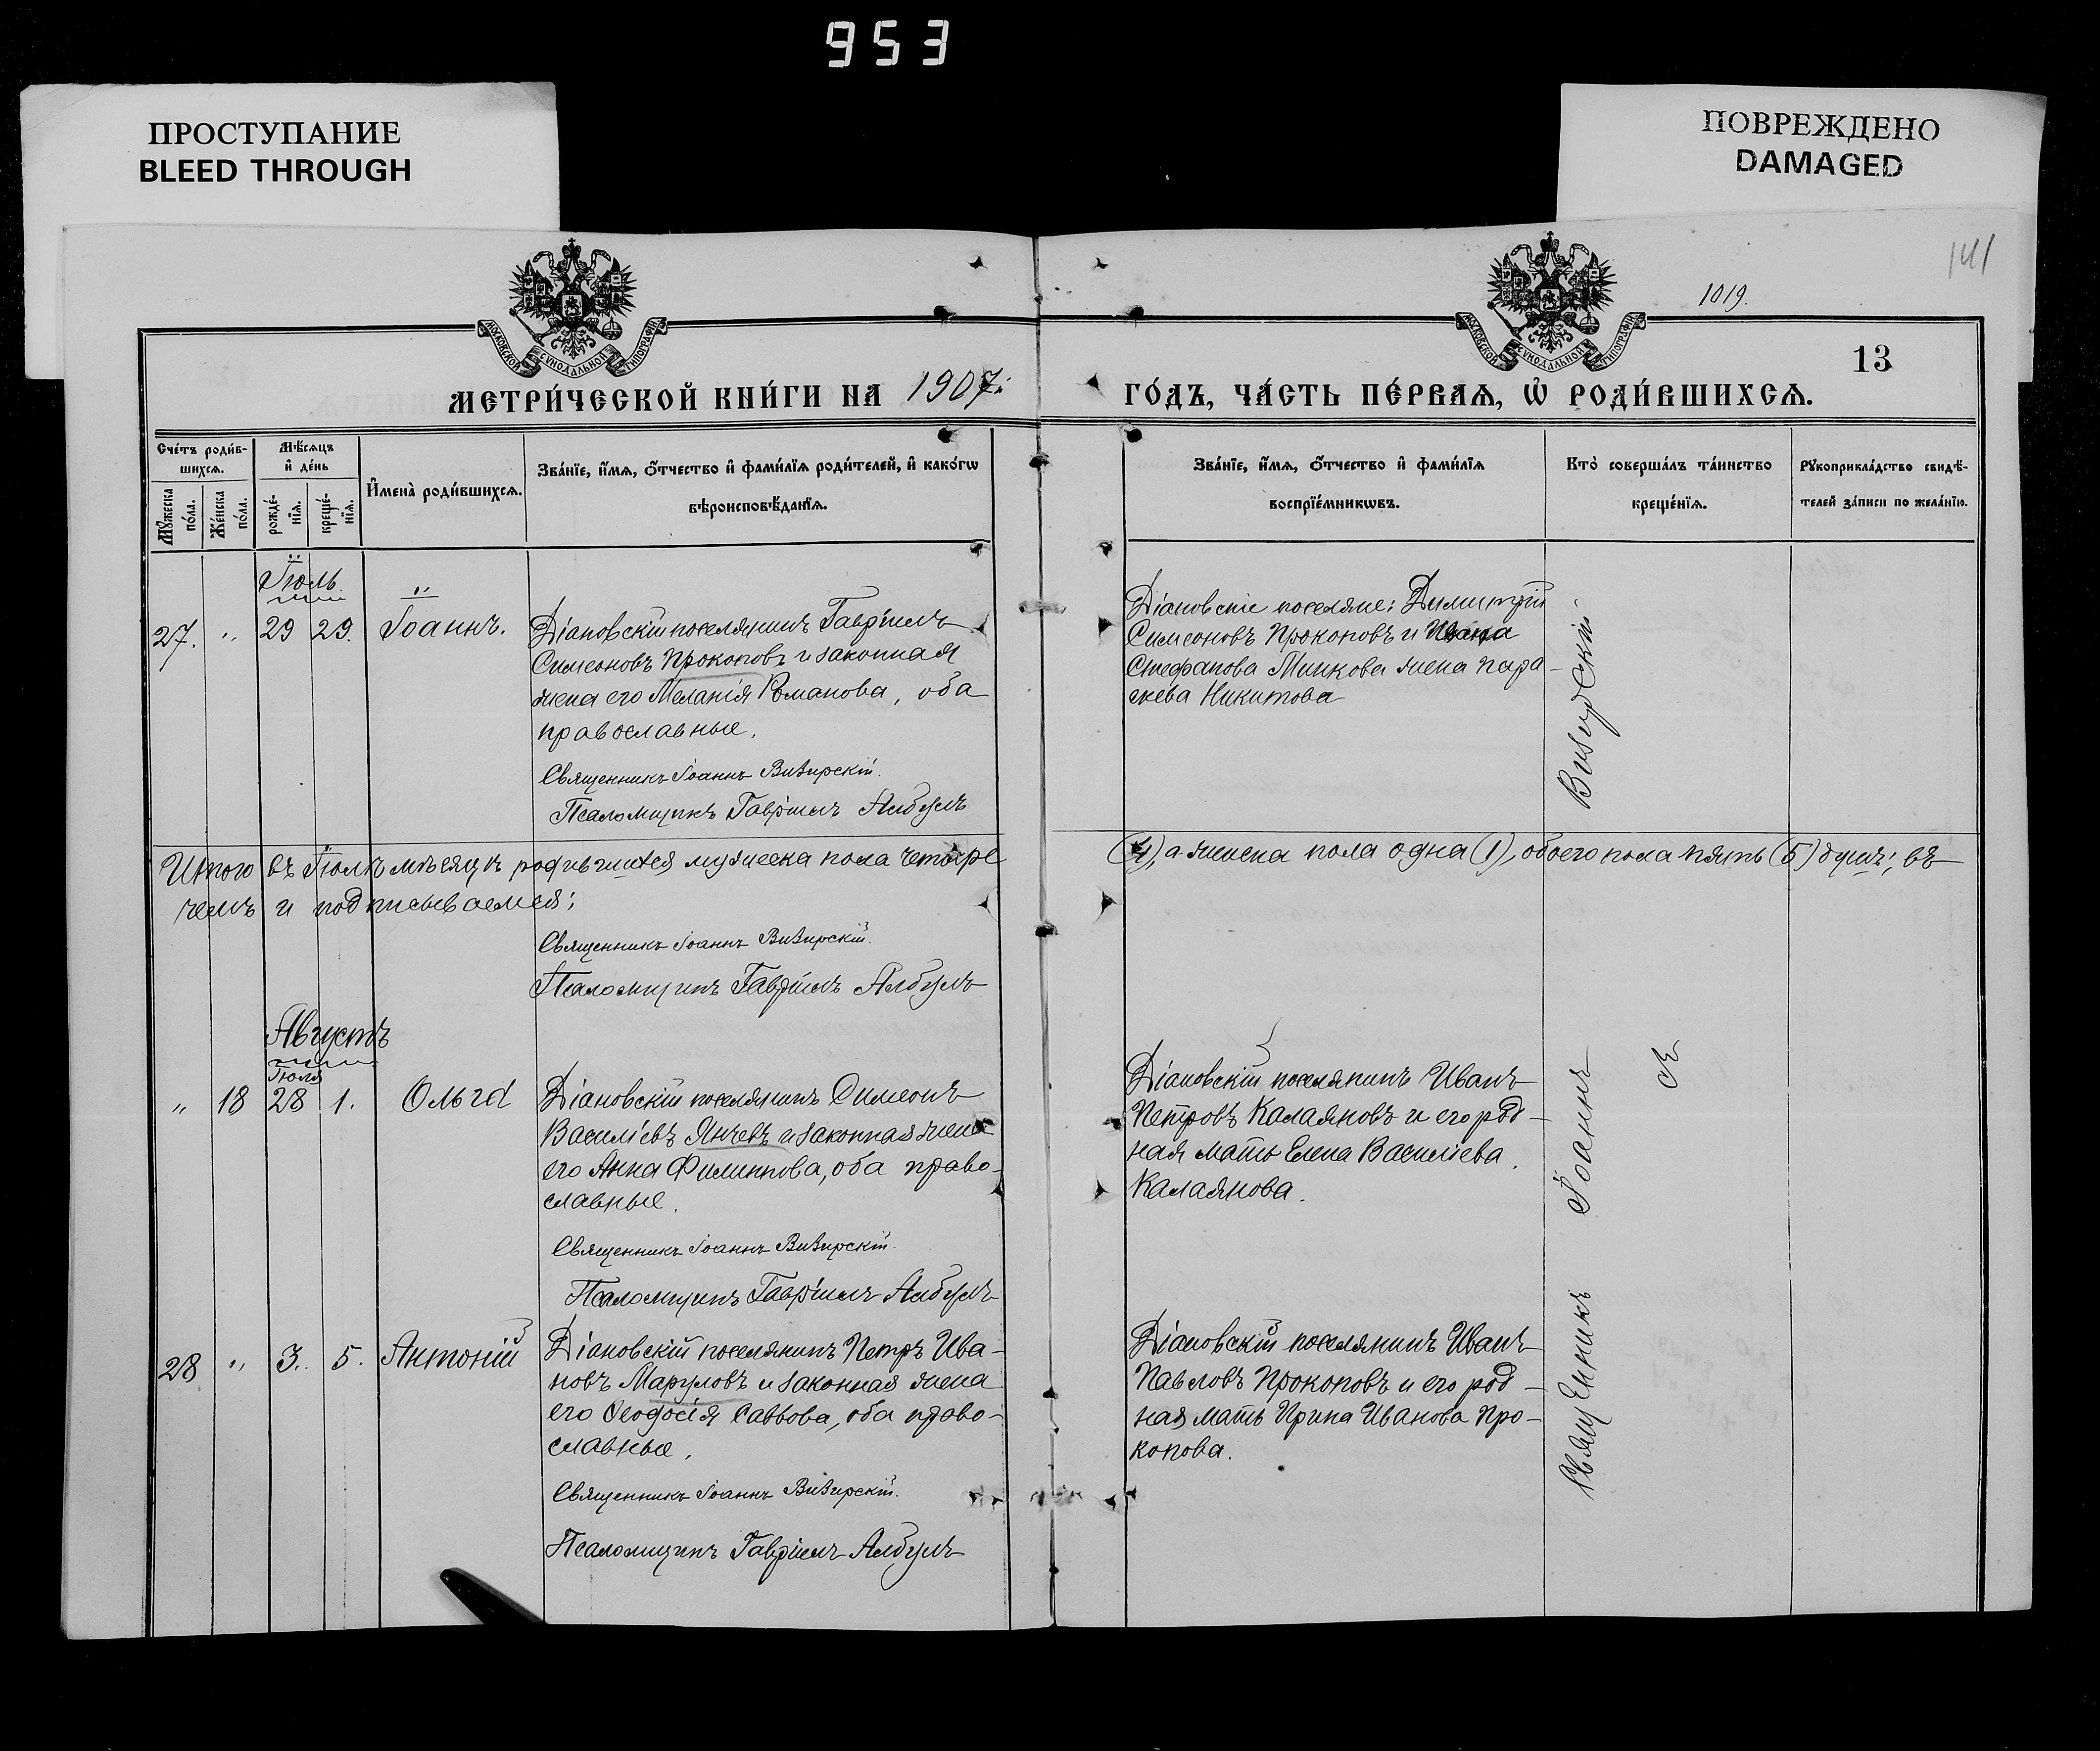 953
ПРОСТУПАНИЕ
BLEED THROUGH
ПОВРЕЖДЕНО
DAMAGED
141
1019.
МОСКОВСКОЙ СѴНОДАЛЬНОЙ ТИПОГРАФІИ
МОСКОВСКОЙ СѴНОДАЛЬНОЙ ТИПОГРАФІИ
13
МЕТРИ́ЧЕСКОЙ КНИ́ГИ НА 1907:
ГО́ДЪ, ЧА́СТЬ ПЕ́РВАѦ, Ѡ҆ РОДИ́ВШИХСѦ.
Сче́тъ роди́в-
шихсѧ.
Мꙋ́жеска
по́ла.
Же́нска
по́ла.
Мѣ́сѧцъ
и҆ де́нь
рожде́-
нїѧ.
креще́-
нїѧ.
И҆мена̀ роди́вшихсѧ.
Зва́нїе, и҆́мѧ, ѻ҆́тчество и҆ фами́лїѧ роди́телей, и҆ како́гѡ
вѣроисповѣ́данїѧ.
Зва́нїе, и҆́мѧ, ѻ҆́тчество и҆ фами́лїѧ
воспрїе́мникѡвъ.
Кто̀ соверша́лъ та́инство
креще́нїѧ.
Рꙋкоприкла́дство свидѣ́-
телей за́писи по жела́нїю.
Іюль.
27. " 29 29. Іоаннъ.
Діановскій поселянинъ Гавріилъ
Симеоновъ Прокоповъ и законная
жена его Меланія Романова, оба
православные.
Священникъ Іоаннъ Визирскій.
Псаломщикъ Гавріилъ Албулъ
Діановскіе поселяне: Димитрій
Симеоновъ Прокоповъ и Ивана
Стефанова Минкова жена Пара-
скева Никитова
Итого въ Іюлѣ мѣсяцѣ родившихся мужеска пола четыре
(4), а женска пола одна (1), обоего пола пять (5) душъ; въ
чемъ и подписываемся:
Священникъ Іоаннъ Визирскій.
Псаломщикъ Гавріилъ Албулъ
Августъ
Іюля
" 18 28 1. Ольга
Діановскій поселянинъ Симеонъ
Василіевъ Янчевъ и законная жена
его Анна Филиппова, оба право-
славные.
Священникъ Іоаннъ Визирскій.
Псаломщикъ Гавріилъ Албулъ
Діановскій поселянинъ Иванъ
Петровъ Калаяновъ и его род-
ная мать Елена Василіева
Калаянова.
28 " 3. 5. Антоній
Діановскій поселянинъ Петръ Ива-
новъ Маруловъ и законная жена
его Ѳеодосія Саввова, оба право-
славные.
Священникъ Іоаннъ Визирскій.
Псаломщикъ Гавріилъ Албулъ
Діановскій поселянинъ Иванъ
Павловъ Прокоповъ и его род-
ная мать Ирина Иванова Про-
копова.
Священникъ Іоаннъ Визирскій